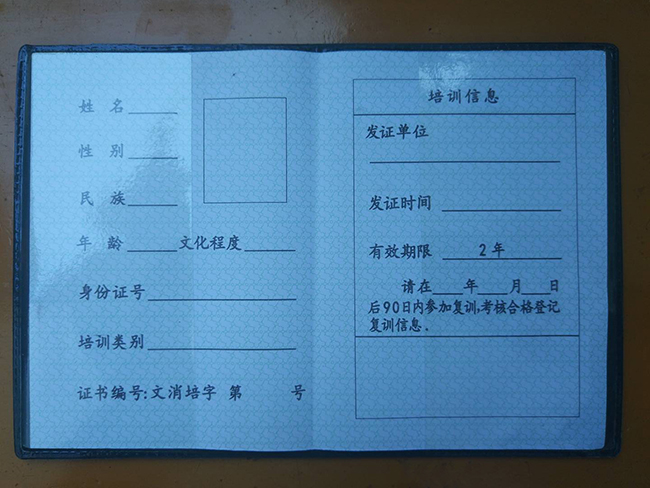 姓 名
性 别
民 族
年 龄 文化程度
身份证号
培训类别
证书编号:文消培字 第 号
培训信息
发证单位
发证时间
有效期限 2年
请在 年 月 日
后90日内参加复训,考核合格登记
复训信息.